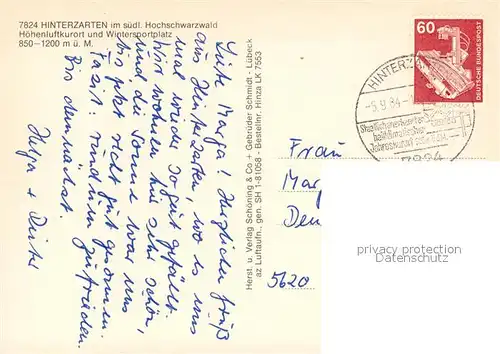 7824 HINTERZARTEN im südl. Hochschwarzwald
Höhenluftkurort und Wintersportplatz
850–1200 m ü. M.
Liebe Marga! Herzlichen Gruß
aus Hinterzarten, wo es uns
mal wieder so gut gefällt.
Wir wohnen hier sehr schön,
und die Sonne war uns
bis jetzt recht gut gesonnen.
Fazit: rundum zufrieden.
Bis demnächst.
Helga + Dieter
Herst. u. Verlag Schöning & Co + Gebrüder Schmidt - Lübeck
az Luftaufn., gen. SH 1-81058 - Bestellnr. Hinza LK 7553
60
DEUTSCHE BUNDESPOST
HINTERZ
-5.9.84-
Staatlich anerkannter
heilklimatischer
Jahreskurort
7824
Frau
Mar
Den
5620
PRIVATARCHIV
PROFESSIONAL